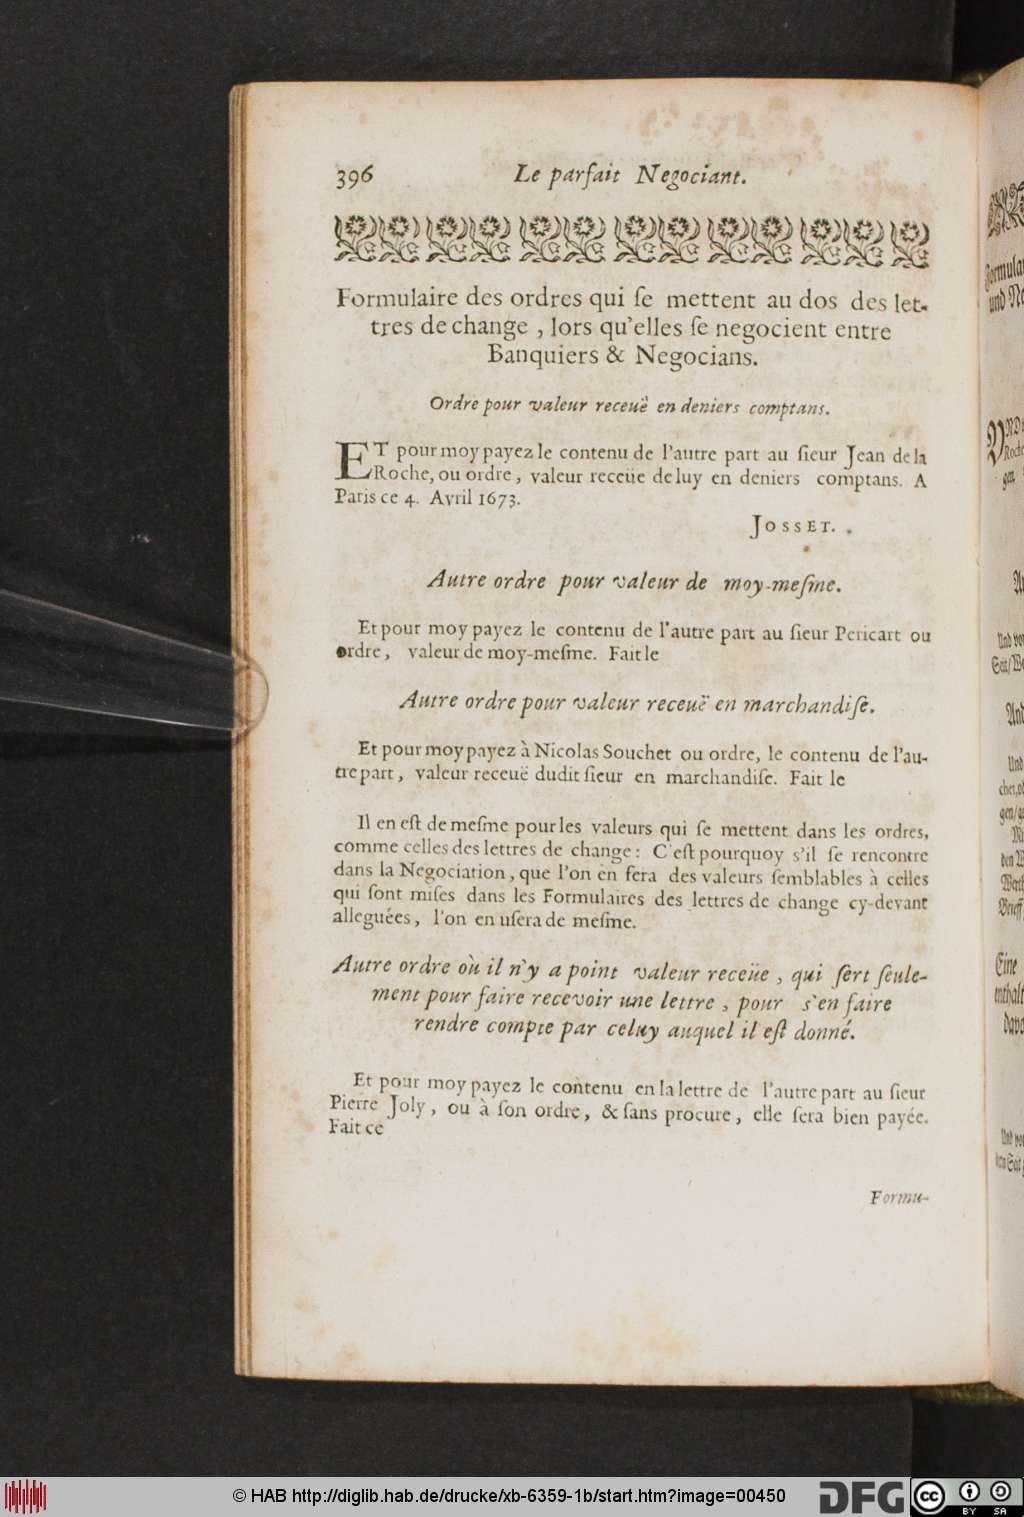 396 Le parfait Negociant.
Formulaire des ordres qui ſe mettent au dos des let-
tres de change, lors qu'elles ſe negocient entre
Banquiers & Negocians.
Ordre pour valeur receuë en deniers comptans.
ET pour moy payez le contenu de l'autre part au ſieur Jean de la
Roche, ou ordre, valeur receüe de luy en deniers comptans. A
Paris ce 4. Avril 1673.
JOSSET.
Autre ordre pour valeur de moy-meſme.
Et pour moy payez le contenu de l'autre part au ſieur Pericart ou
ordre, valeur de moy-meſme. Fait le
Autre ordre pour valeur receuë en marchandiſe.
Et pour moy payez à Nicolas Souchet ou ordre, le contenu de l'au-
tre part, valeur receuë dudit ſieur en marchandiſe. Fait le
Il en eſt de meſme pour les valeurs qui ſe mettent dans les ordres,
comme celles des lettres de change: C'eſt pourquoy s'il ſe rencontre
dans la Negociation, que l'on en fera des valeurs ſemblables à celles
qui ſont miſes dans les Formulaires des lettres de change cy-devant
alleguées, l'on en uſera de meſme.
Autre ordre où il n'y a point valeur receüe, qui ſert ſeule-
ment pour faire recevoir une lettre, pour s'en faire
rendre compte par celuy auquel il eſt donné.
Et pour moy payez le contenu en la lettre de l'autre part au ſieur
Pierre Joly, ou à ſon ordre, & ſans procure, elle ſera bien payée.
Fait ce
Formu-
© HAB http://diglib.hab.de/drucke/xb-6359-1b/start.htm?image=00450
DFG
cc BY SA